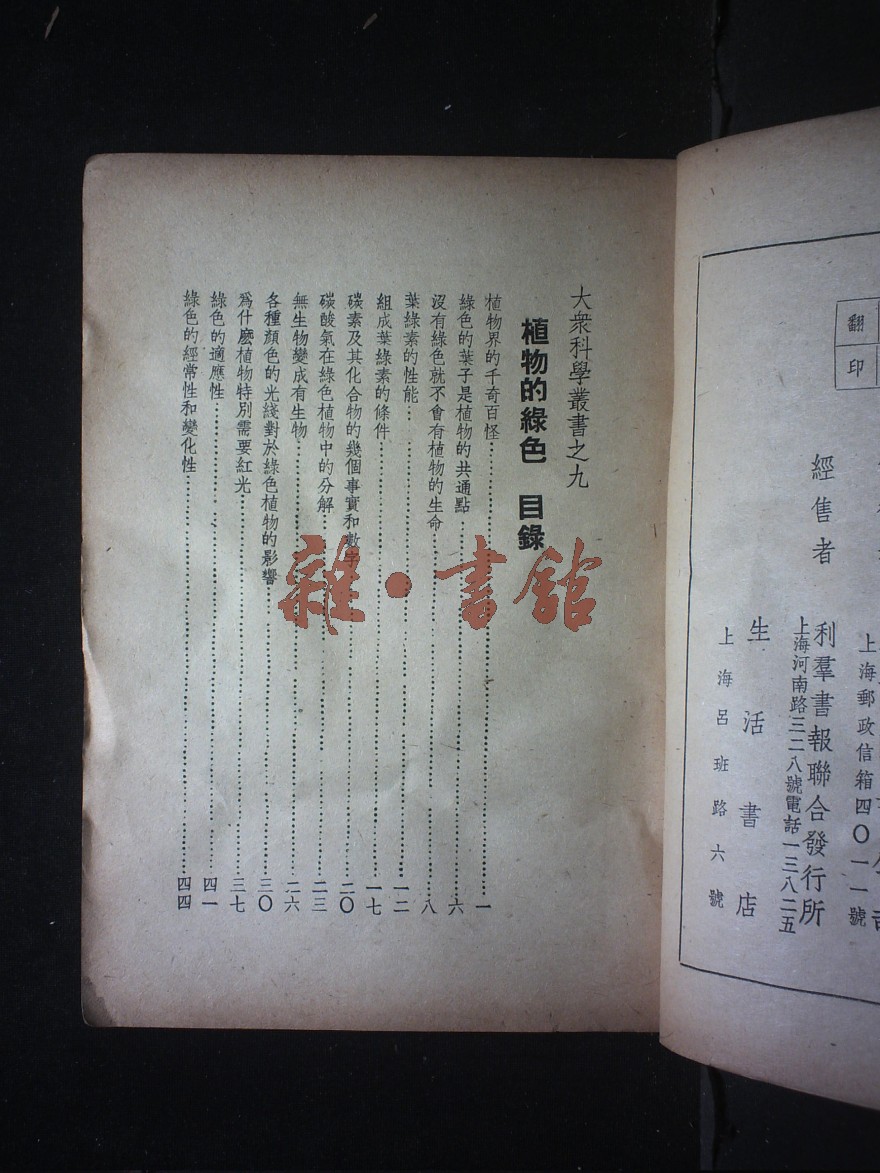 翻印
上海郵政信箱四〇一一號
經售者
利羣書報聯合發行所
上海河南路三二八號電話一三八二五
生活書店
上海呂班路六號
大衆科學叢書之九
植物的綠色 目錄
植物界的千奇百怪……一
綠色的葉子是植物的共通點……六
沒有綠色就不會有植物的生命……八
葉綠素的性能……一二
組成葉綠素的條件……一七
碳素及其化合物的幾個事實和數字……二〇
碳酸氣在綠色植物中的分解……二三
無生物變成有生物……二六
各種顏色的光綫對於綠色植物的影響……三〇
爲什麽植物特別需要紅光……三七
綠色的適應性……四一
綠色的經常性和變化性……四四
雜·書館